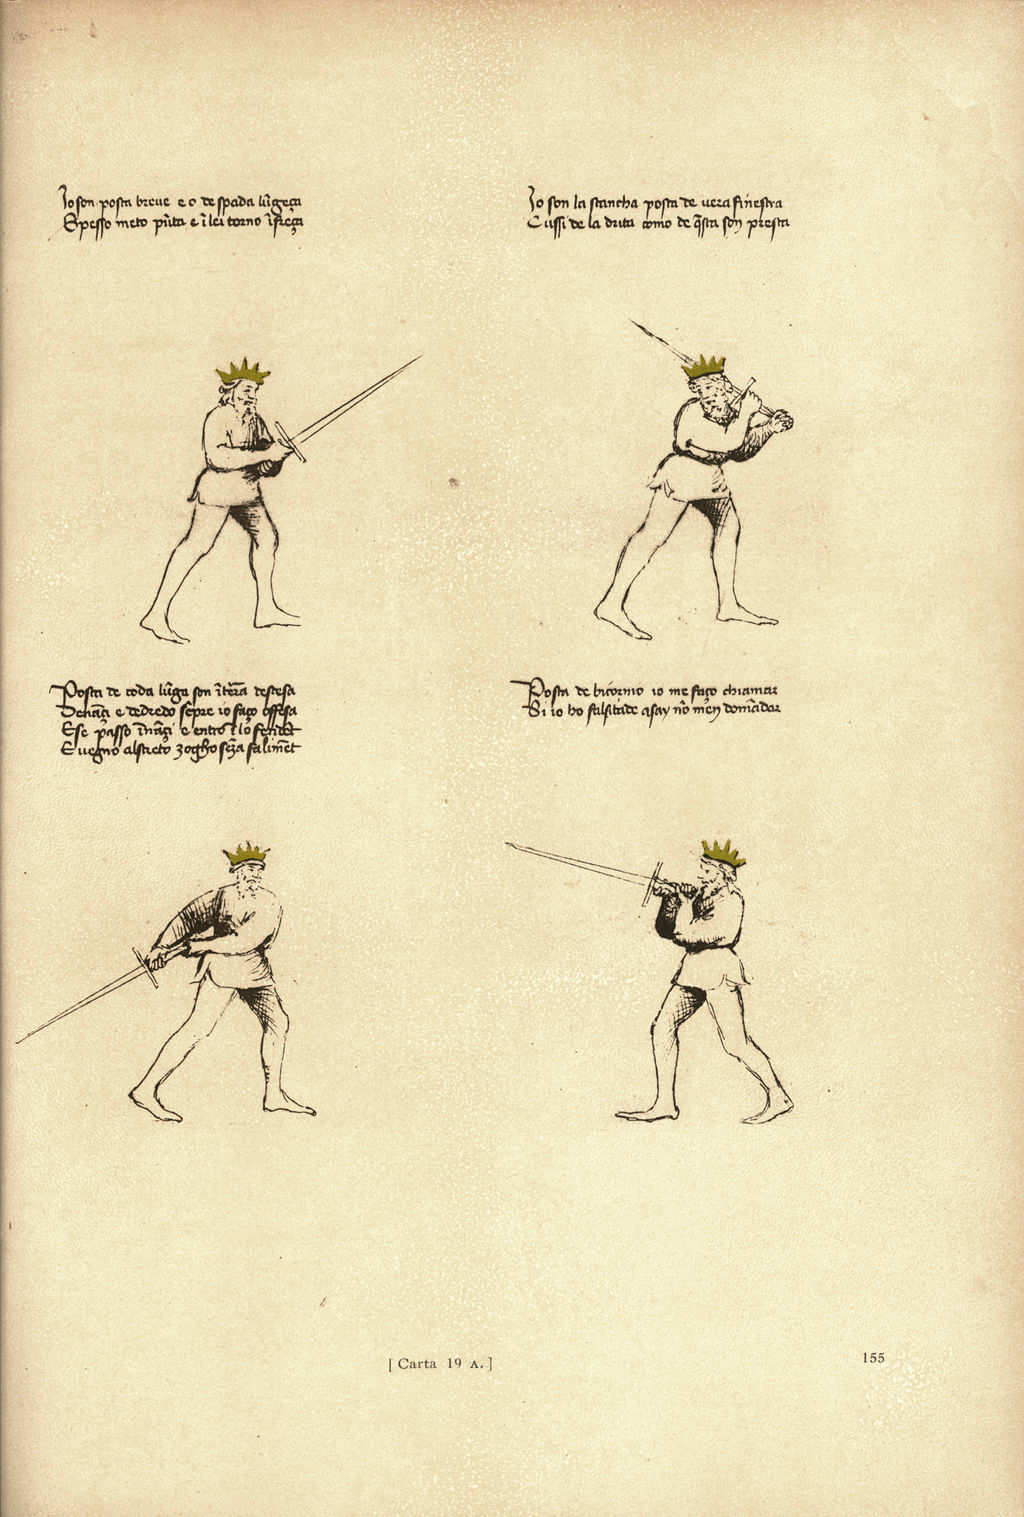 Io son posta breue e o de spada lūgeça
Spesso meto pūta e ī lei torno ī freça
Io son la stancha posta de uera finestra
Cussi de la drita como de q̄sta son presta
Posta de coda lūga son ī tēra destesa
Denāçi e dedredo sēpre io faço offesa
E se passo īnāçi e entro ī lo fendēt
E uegno al streto zogho sēza falimēt
Posta de bicornio io me faço chiamar
Si io ho falsitade asay nō men domādar
[ Carta 19 A. ]
155